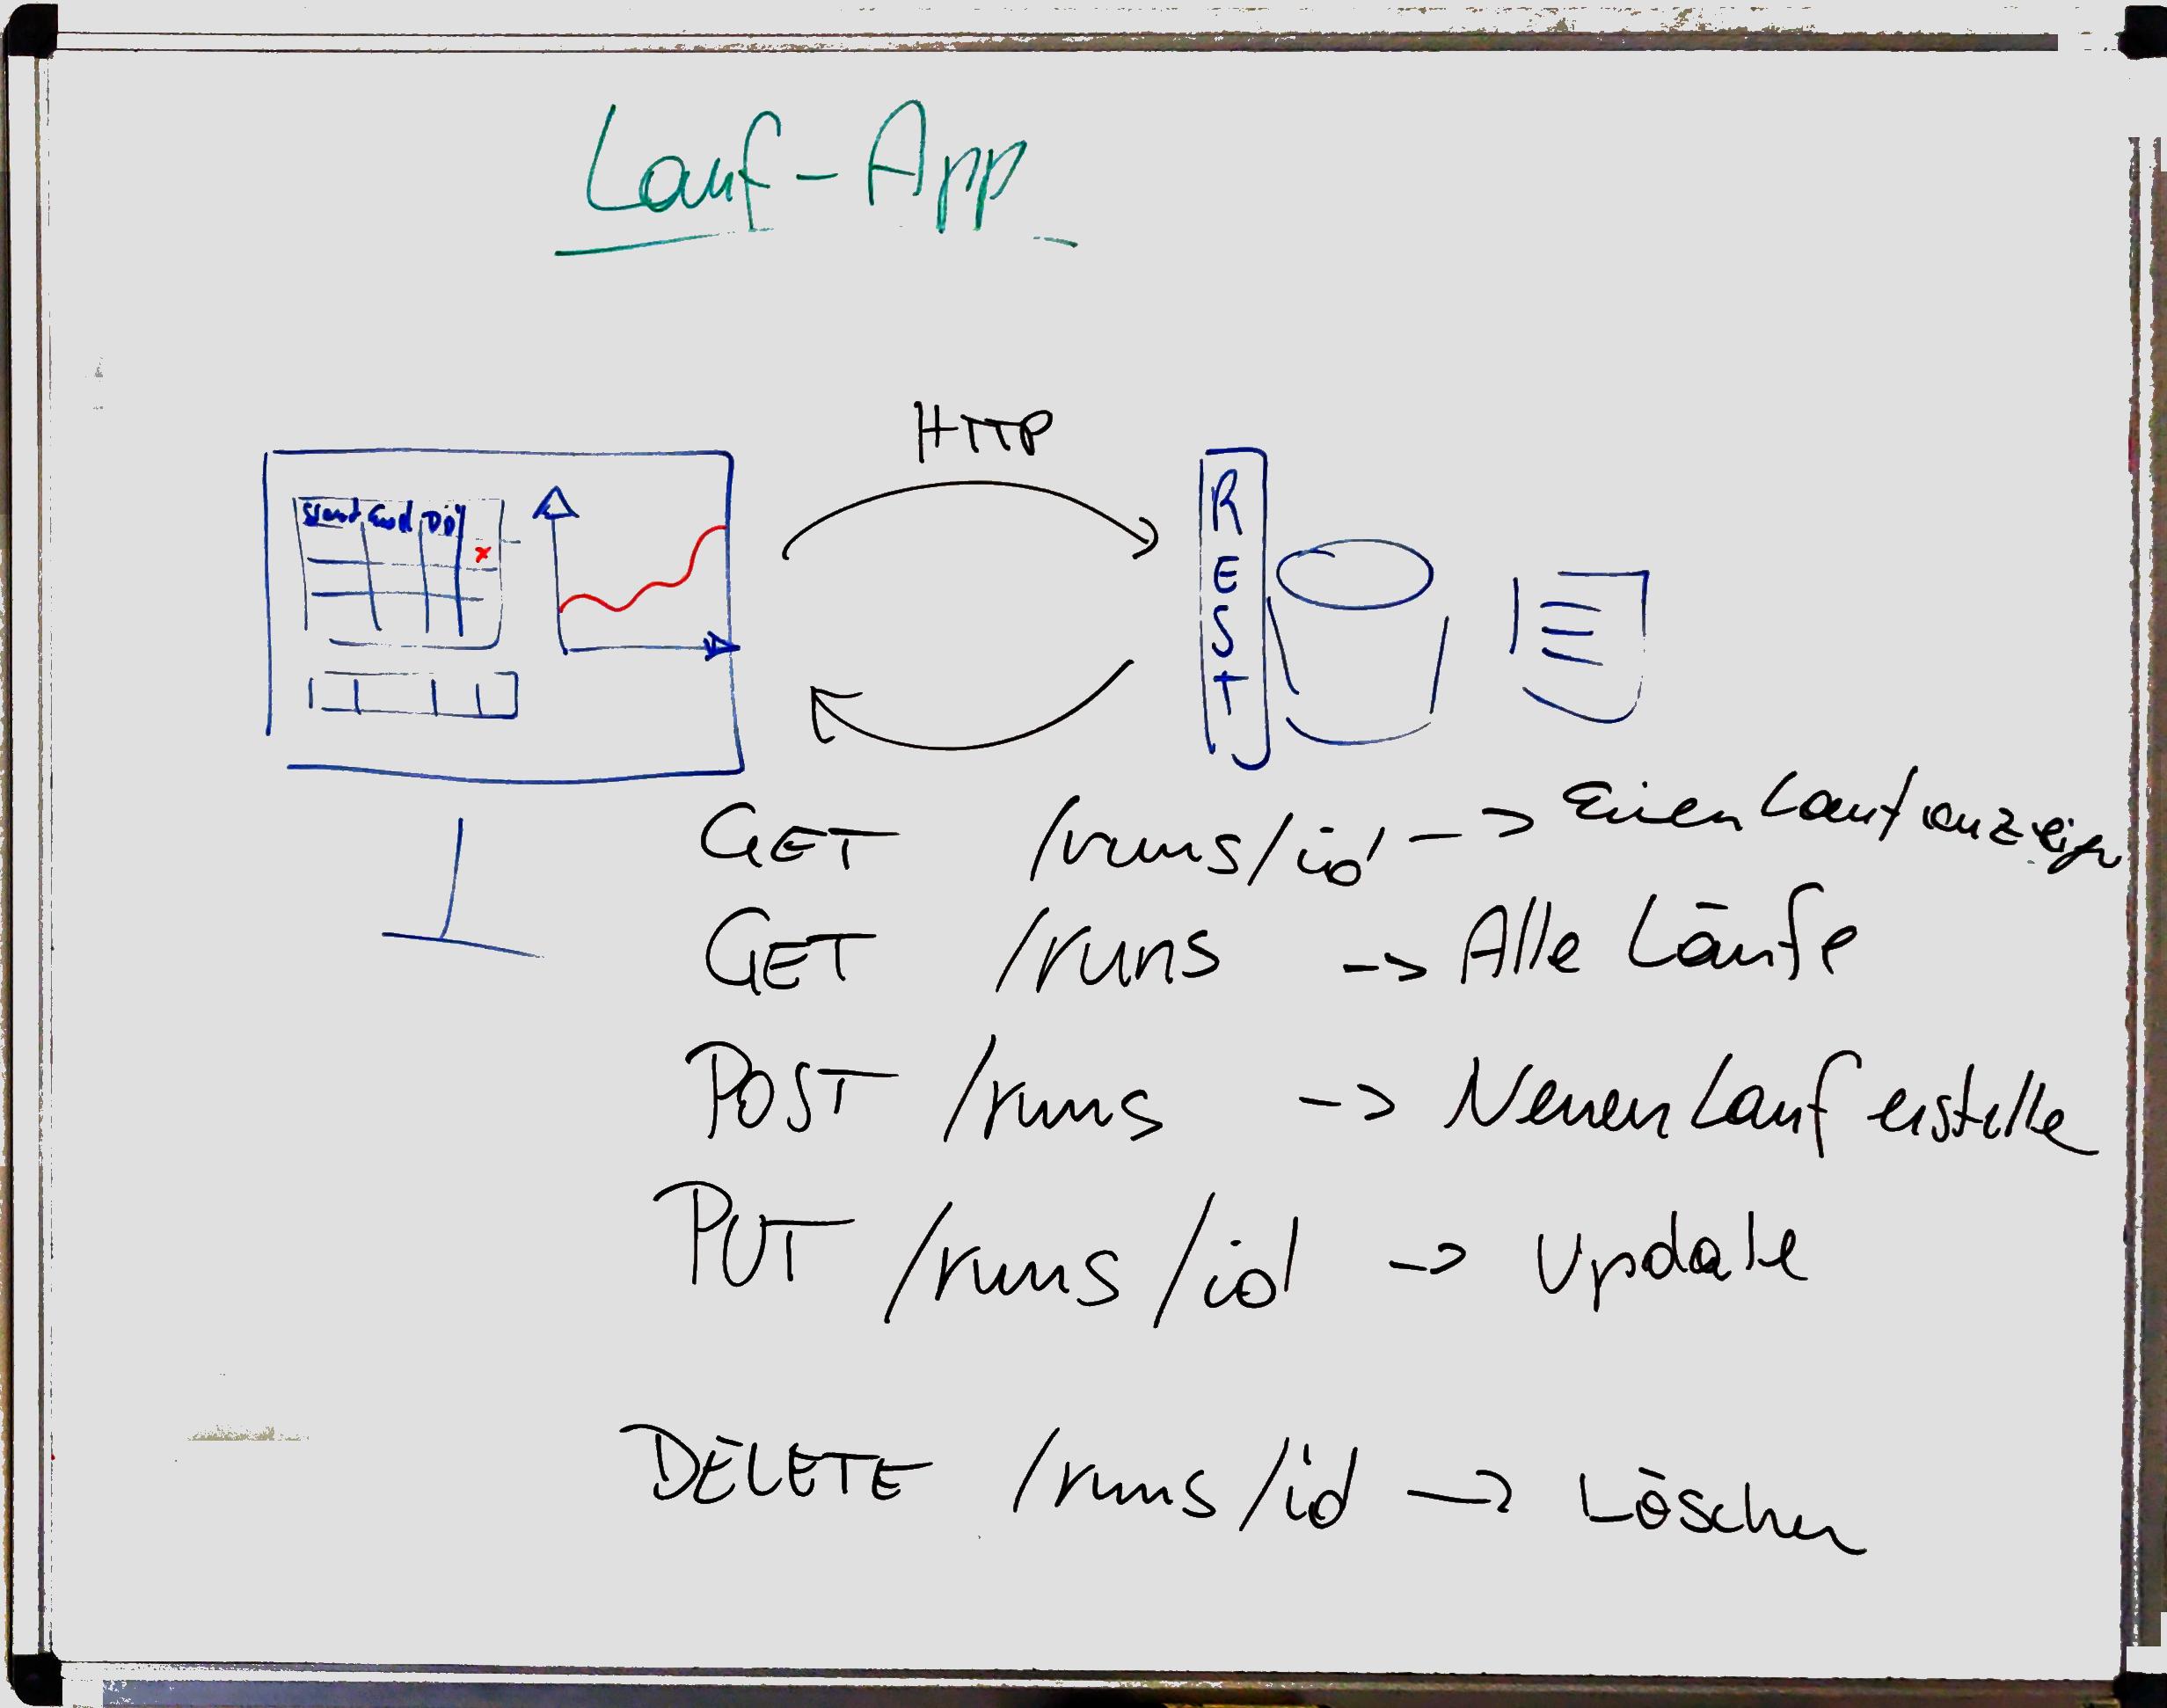 Lauf-App
HTTP
Start End
REST
GET /runs/id -> Einen Lauf anzeigen
GET /runs -> Alle Läufe
POST /runs -> Neuen Lauf erstelle
PUT /runs/id -> Update
DELETE /runs/id -> Löschen